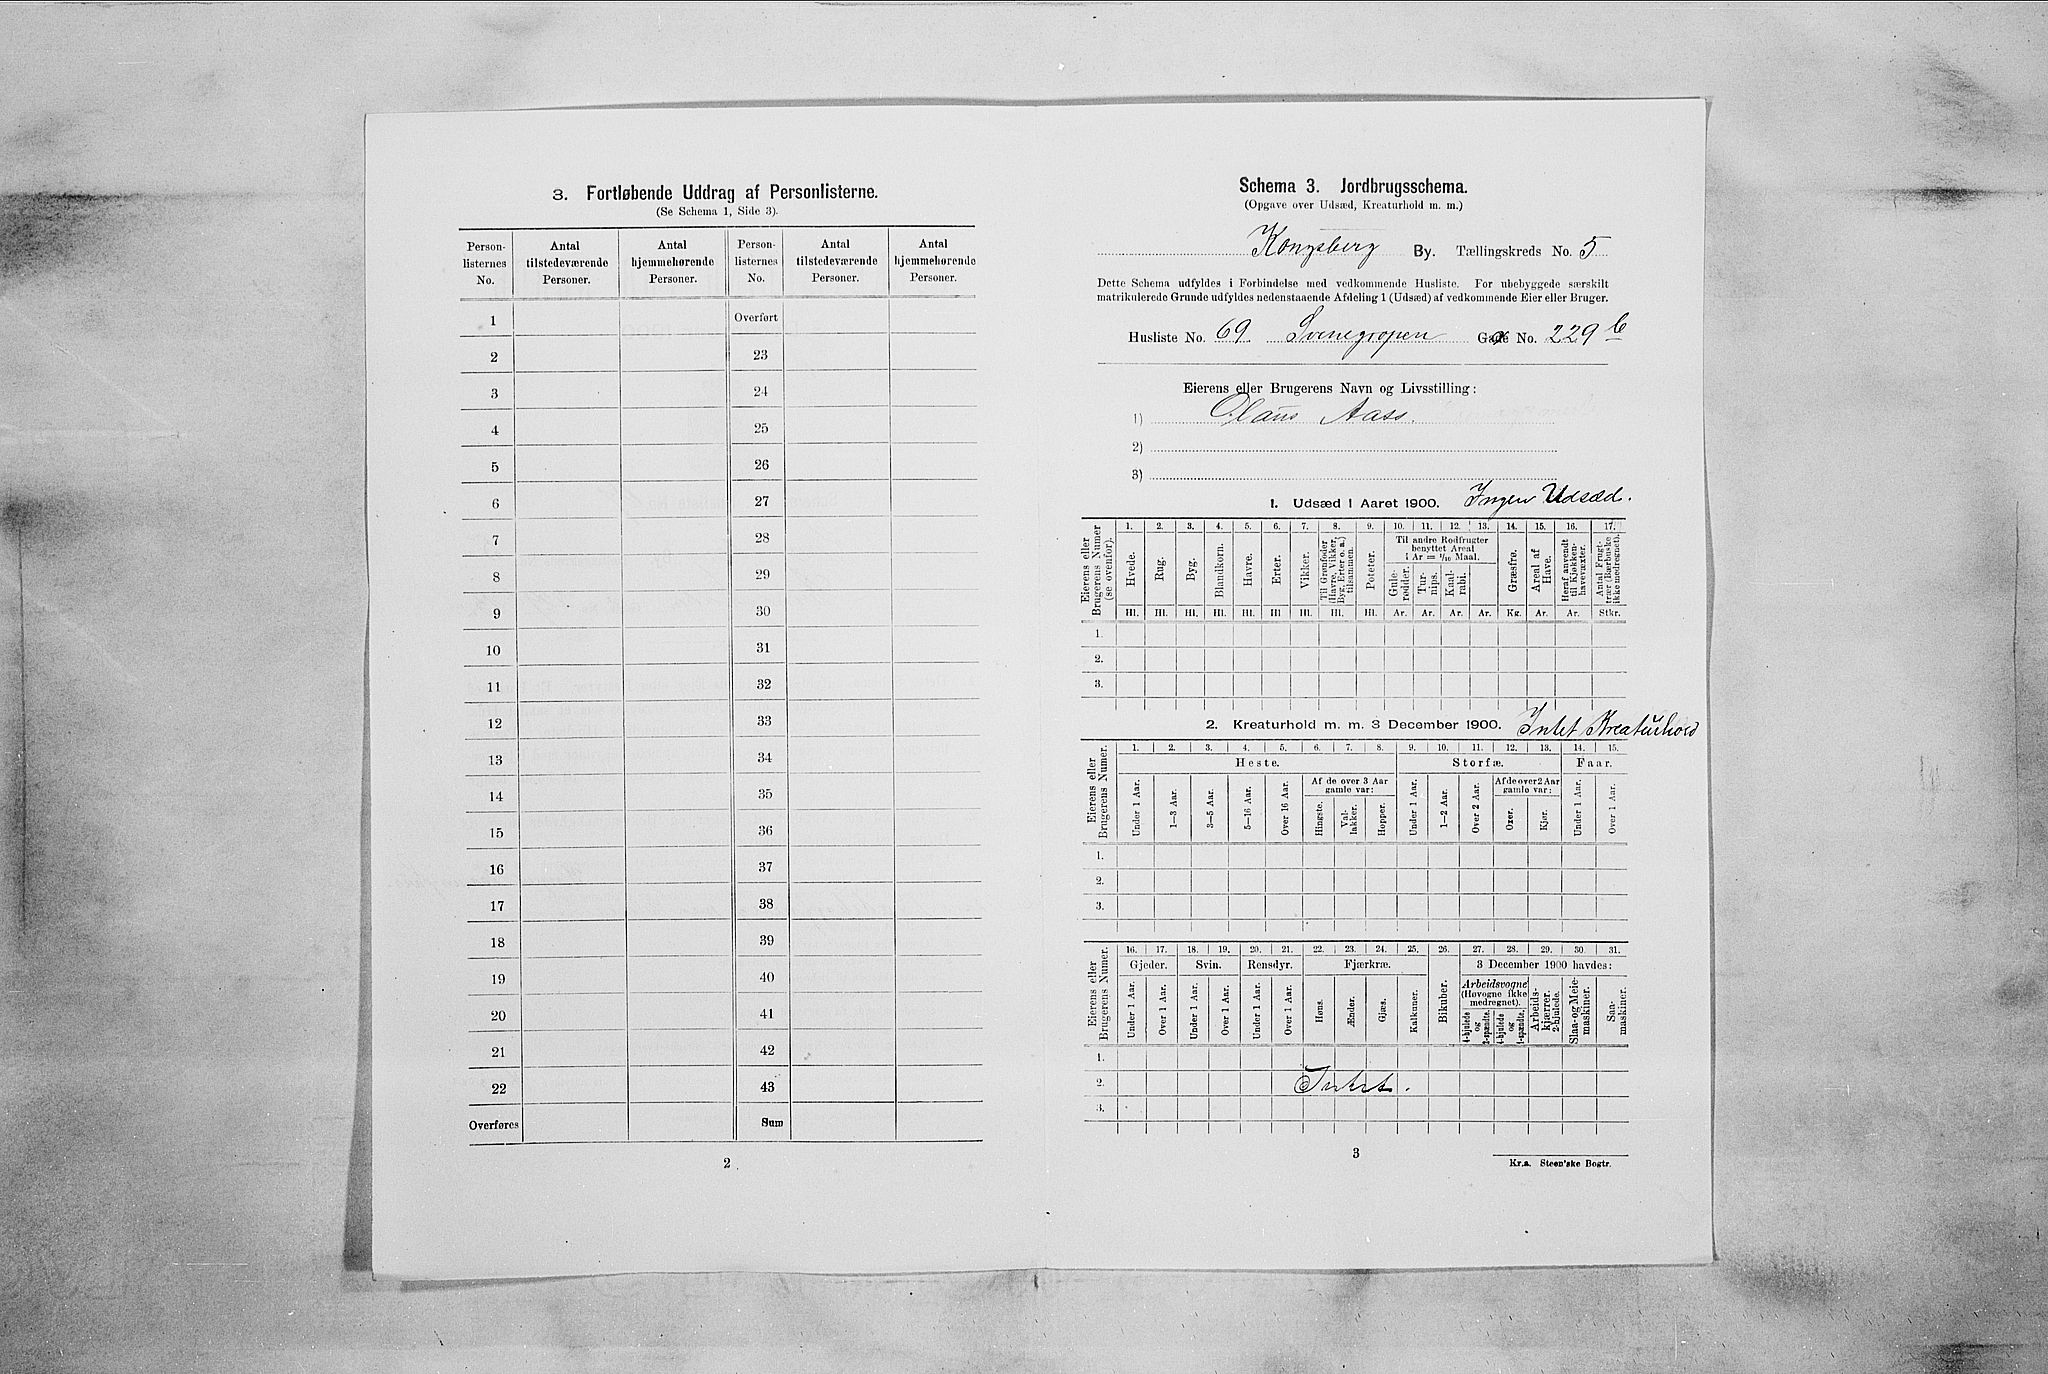 3. Fortløbende Uddrag af Personlisterne.
(Se Schema 1, Side 3).
Person-listernes No. | Antal tilstedeværende Personer. | Antal hjemmehørende Personer. | Person-listernes No. | Antal tilstedeværende Personer. | Antal hjemmehørende Personer.
1 Overført
2 23
3 24
4 25
5 26
6 27
7 28
8 29
9 30
10 31
11 32
12 33
13 34
14 35
15 36
16 37
17 38
18 39
19 40
20 41
21 42
22 43
Overføres Sum
2
Schema 3. Jordbrugsschema.
(Opgave over Udsæd, Kreaturhold m. m.)
Kongsberg By. Tællingskreds No. 5
Dette Schema udfyldes i Forbindelse med vedkommende Husliste. For ubebyggede særskilt
matrikulerede Grunde udfyldes nedenstaaende Afdeling 1 (Udsæd) af vedkommende Eier eller Bruger.
Husliste No. 69 Svenegropen Gade No. 229 b
Eierens eller Brugerens Navn og Livsstilling:
1) Olaus Aass.
2)
3)
1. Udsæd i Aaret 1900. Ingen Udsæd.
Eierens eller Brugerens Numer (se ovenfor).
1. 2. 3. 4. 5. 6. 7. 8. 9. 10. 11. 12. 13. 14. 15. 16. 17.
Hvede. Rug. Byg. Blandkorn. Havre. Erter. Vikker. Til Grønfoder (Havre, Vikker, Byg, Erter o. a.) tilsammen. Poteter.
Til andre Rodfrugter benyttet Areal 1 Ar = 1/10 Maal.
Gule-rødder. Tur-nips. Kaal-rabi. Græsfrø. Areal af Have. Heraf anvendt til Kjøkken-havevæxter. Antal Frugt-trær (Bærbuske ikke medregnet).
Hl. Hl. Hl. Hl. Hl. Hl. Hl. Hl. Hl. Ar. Ar. Ar. Ar. Kg. Ar. Ar. Stkr.
1.
2.
3.
2. Kreaturhold m. m. 3 December 1900. Intet Kreaturhold
Eierens eller Brugerens Numer.
1. 2. 3. 4. 5. 6. 7. 8. 9. 10. 11. 12. 13. 14. 15.
Heste. Storfæ. Faar.
Af de over 3 Aar gamle var: Af de over 2 Aar gamle var:
Under 1 Aar. 1—3 Aar. 3—5 Aar. 5—16 Aar. Over 16 Aar. Hingste. Val-lakker. Hopper. Under 1 Aar. 1—2 Aar. Over 2 Aar. Oxer. Kjør. Under 1 Aar. Over 1 Aar.
1.
2.
3.
Eierens eller Brugerens Numer.
16. 17. 18. 19. 20. 21. 22. 23. 24. 25. 26. 27. 28. 29. 30. 31.
Gjeder. Svin. Rensdyr. Fjærkræ. Bikuber. 3 December 1900 havdes:
Under 1 Aar. Over 1 Aar. Under 1 Aar. Over 1 Aar. Under 1 Aar. Over 1 Aar. Høns. Ænder. Gjæs. Kalkuner.
Arbeidsvogne (Høvogne ikke medregnet).
4-hjulede og 2-spændte. 4-hjulede og 1-spændte. Arbeids-kjærrer. 2-hjulede. Slaa- og Meie-maskiner. Saa-maskiner.
1.
2. Intet.
3.
3
Kr.a. Steen'ske Bogtr.